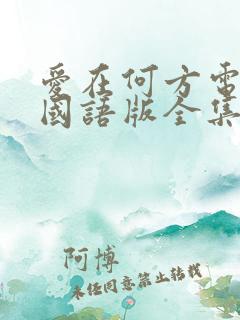 愛在何方電
國語版全集
阿博
未经同意禁止转载